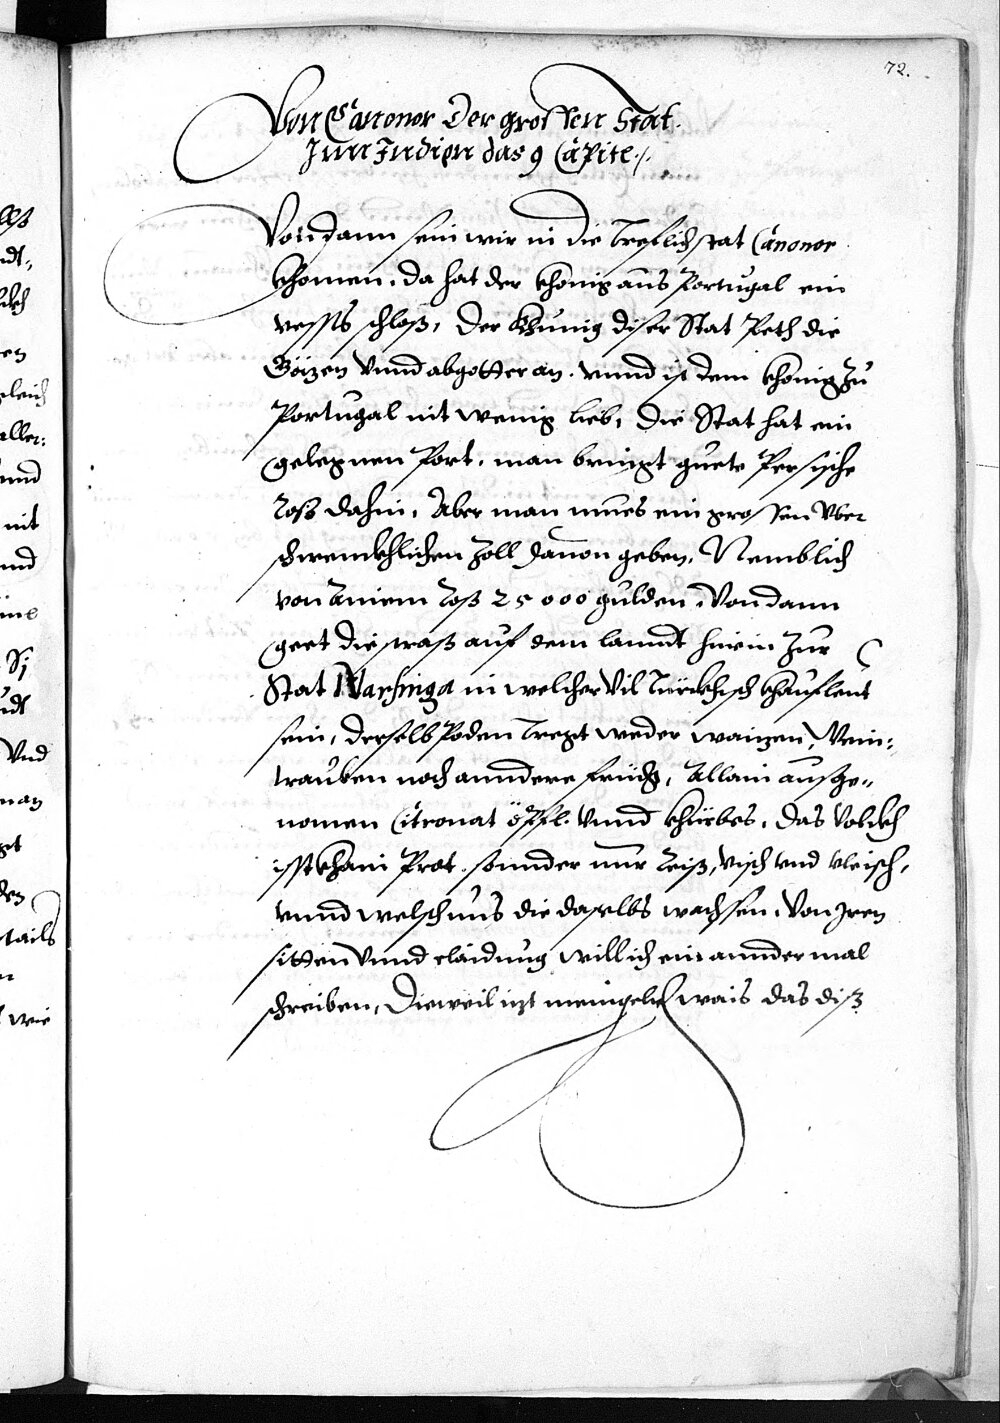 72.
Von Canonor der grossen Stat.
Inn Indien das 9 Capite./.
Von dann sein wir in die treflich stat Canonor
khomen, da hat der khönig aus Portugal ein
vessts schloß, Der Khunig diser Stat Peth die
Götzen vnnd abgotter an. vnnd ist dem khönig zu
Portugal nit wenig lieb, Die Stat hat ein
gelegnen Port, man bringt guete Persische
Roß dahin, Aber man mues ein grossen vber
schwenckhlichen zoll dauon geben, Nemblich
von Ainem Roß 25000 gulden, Von dann
geet die straß auf dem lanndt hinein zur
Stat Narsinga in welcher vil Türckhisch khaufleut
sein, derselb Poden tregt weder waitzen, Wein-
trauben noch anndere früchg, Allain ausge-
nomen Citronat öpfl. vnnd khürbes, das volckh
isst khain Prot, sonnder nur Reiß, visch vnd vleisch,
vnnd welsch nus die daselbs wachsen, Von Iren
sitten vnnd claidung will ich ein annder mal
schreiben, Dieweil itzt menigelich wais das diß
llß
ndt,
en
gleich
aller:
vnnd
nit
nnd
Vnd
man
den
tails
wie